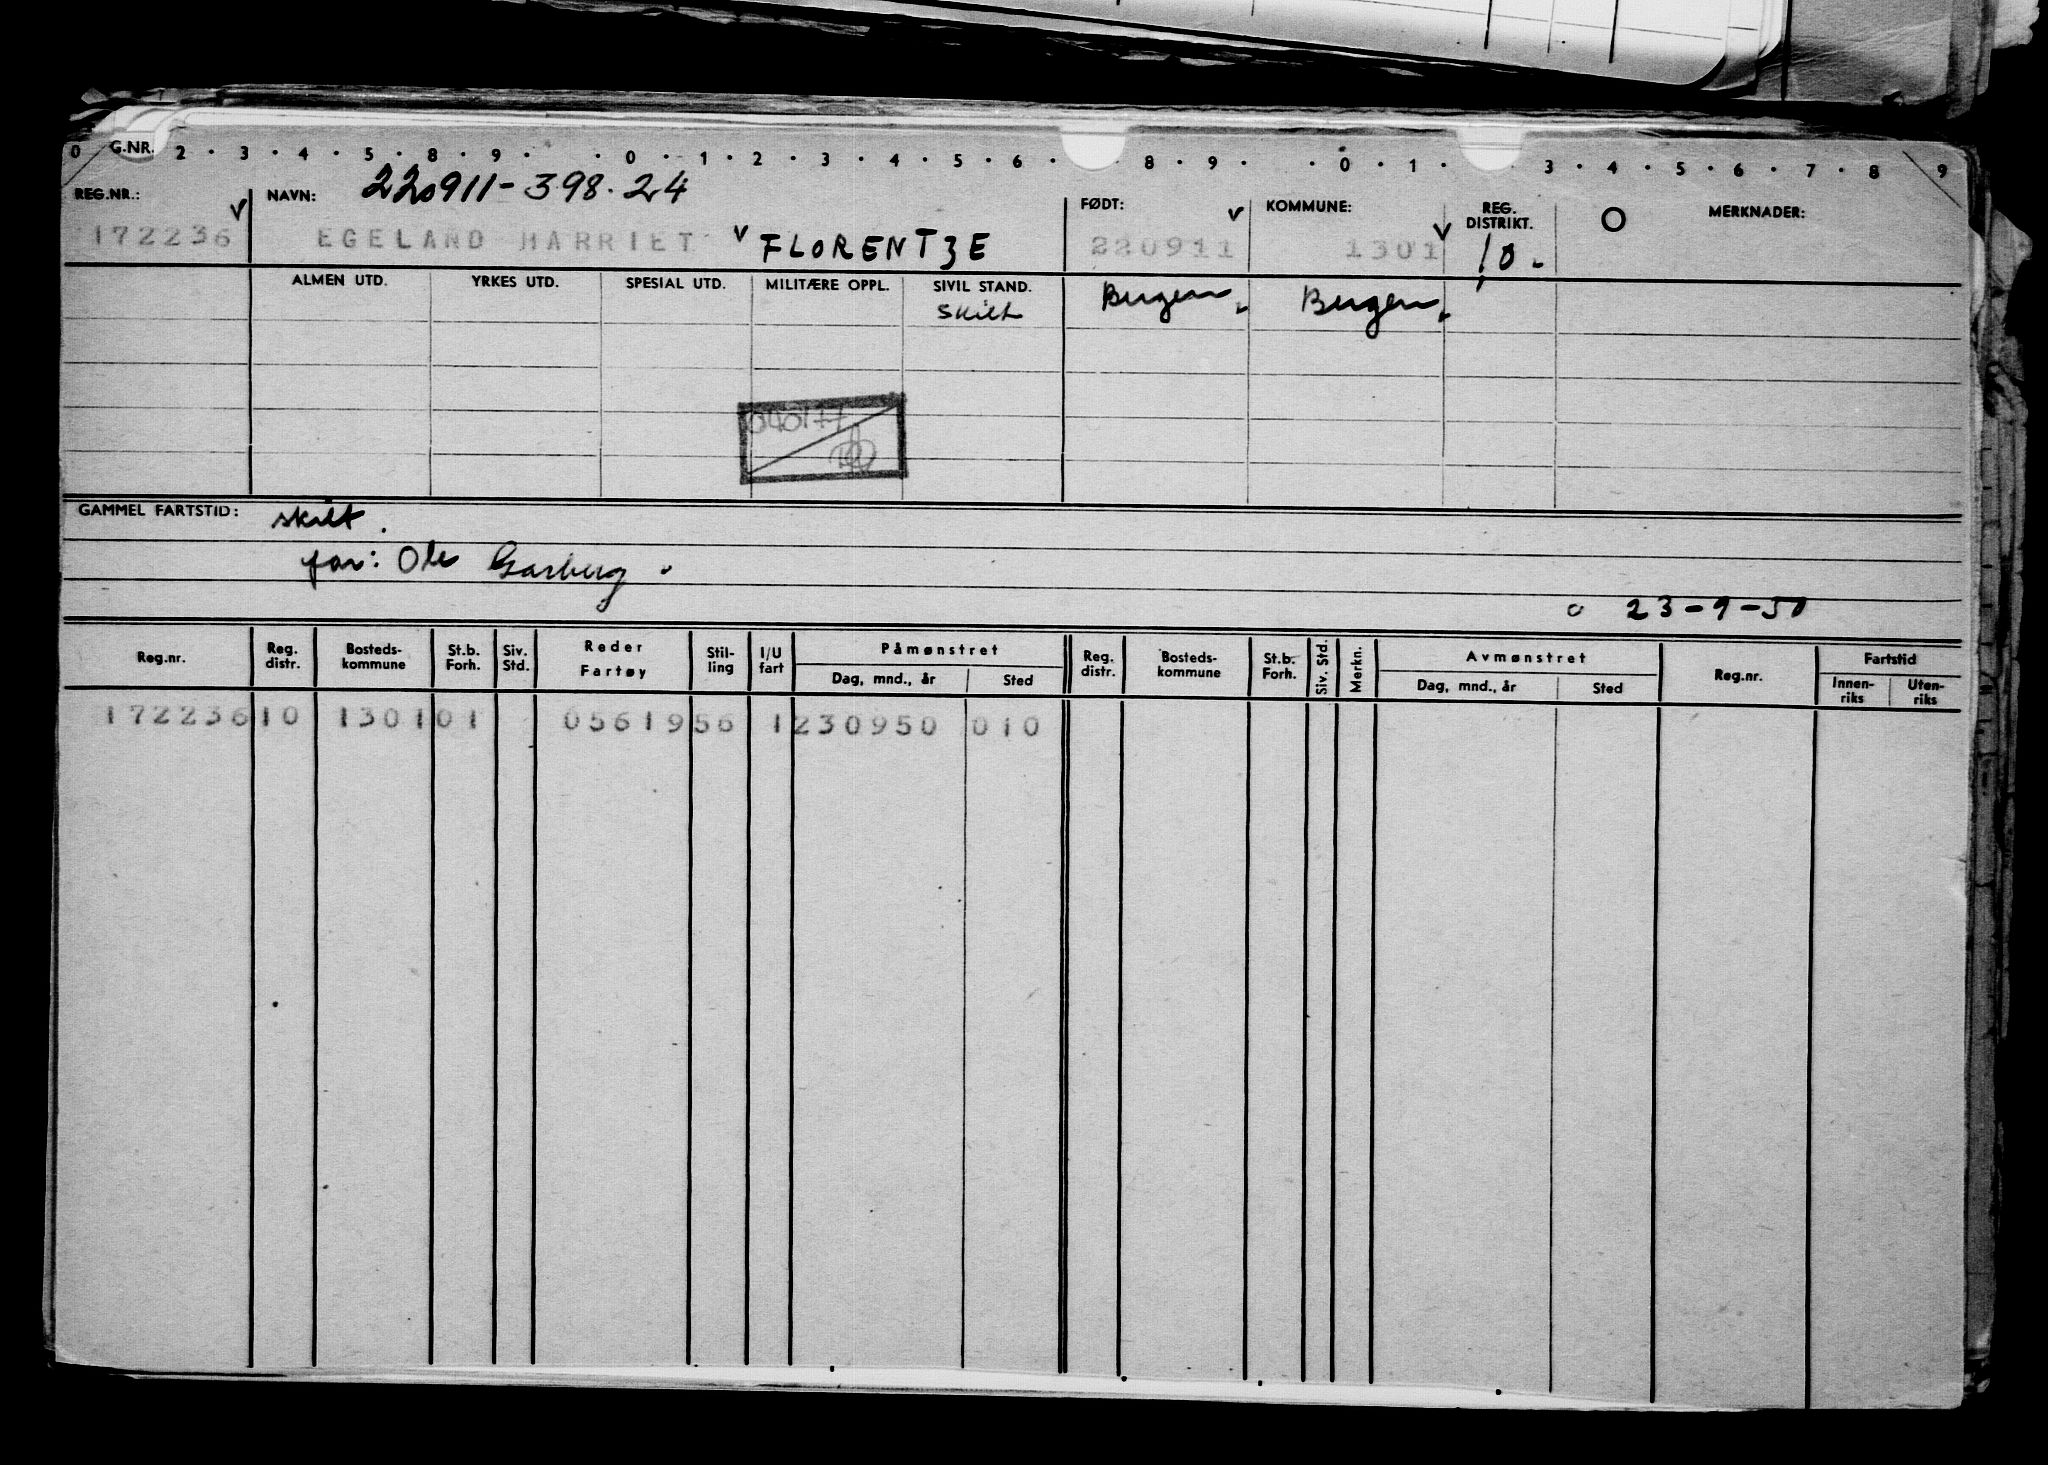 0 G.NR. 2 · 3 · 4 · 5 · 8 · 9 · · 0 · 1 · 2 · 3 · 4 · 5 · 6 · 8 · 9 · · 0 · 1 · 3 · 4 · 5 · 6 · 7 · 8 9
REG.NR.: NAVN: 220911-398.24 FØDT: KOMMUNE: REG. DISTRIKT. O MERKNADER:
172236 EGELAND HARRIET FLORENTZE 220911 1301 10.
ALMEN UTD. YRKES UTD. SPESIAL UTD. MILITÆRE OPPL. SIVIL STAND. Bergen Bergen
skilt
040177
GAMMEL FARTSTID: skilt.
far: Ole Garberg.
23-9-50
Reg.nr. Reg. distr. Bosteds-kommune St.b. Forh. Siv. Std. Reder Fartøy Stil-ling I/U fart Påmønstret Dag, mnd., år Sted Reg. distr. Bosteds-kommune St.b. Forh. Siv. Std. Merkn. Avmønstret Dag, mnd., år Sted Reg.nr. Fartstid Innen-riks Uten-riks
172236 10 1301 01 05619 56 1 230950 010